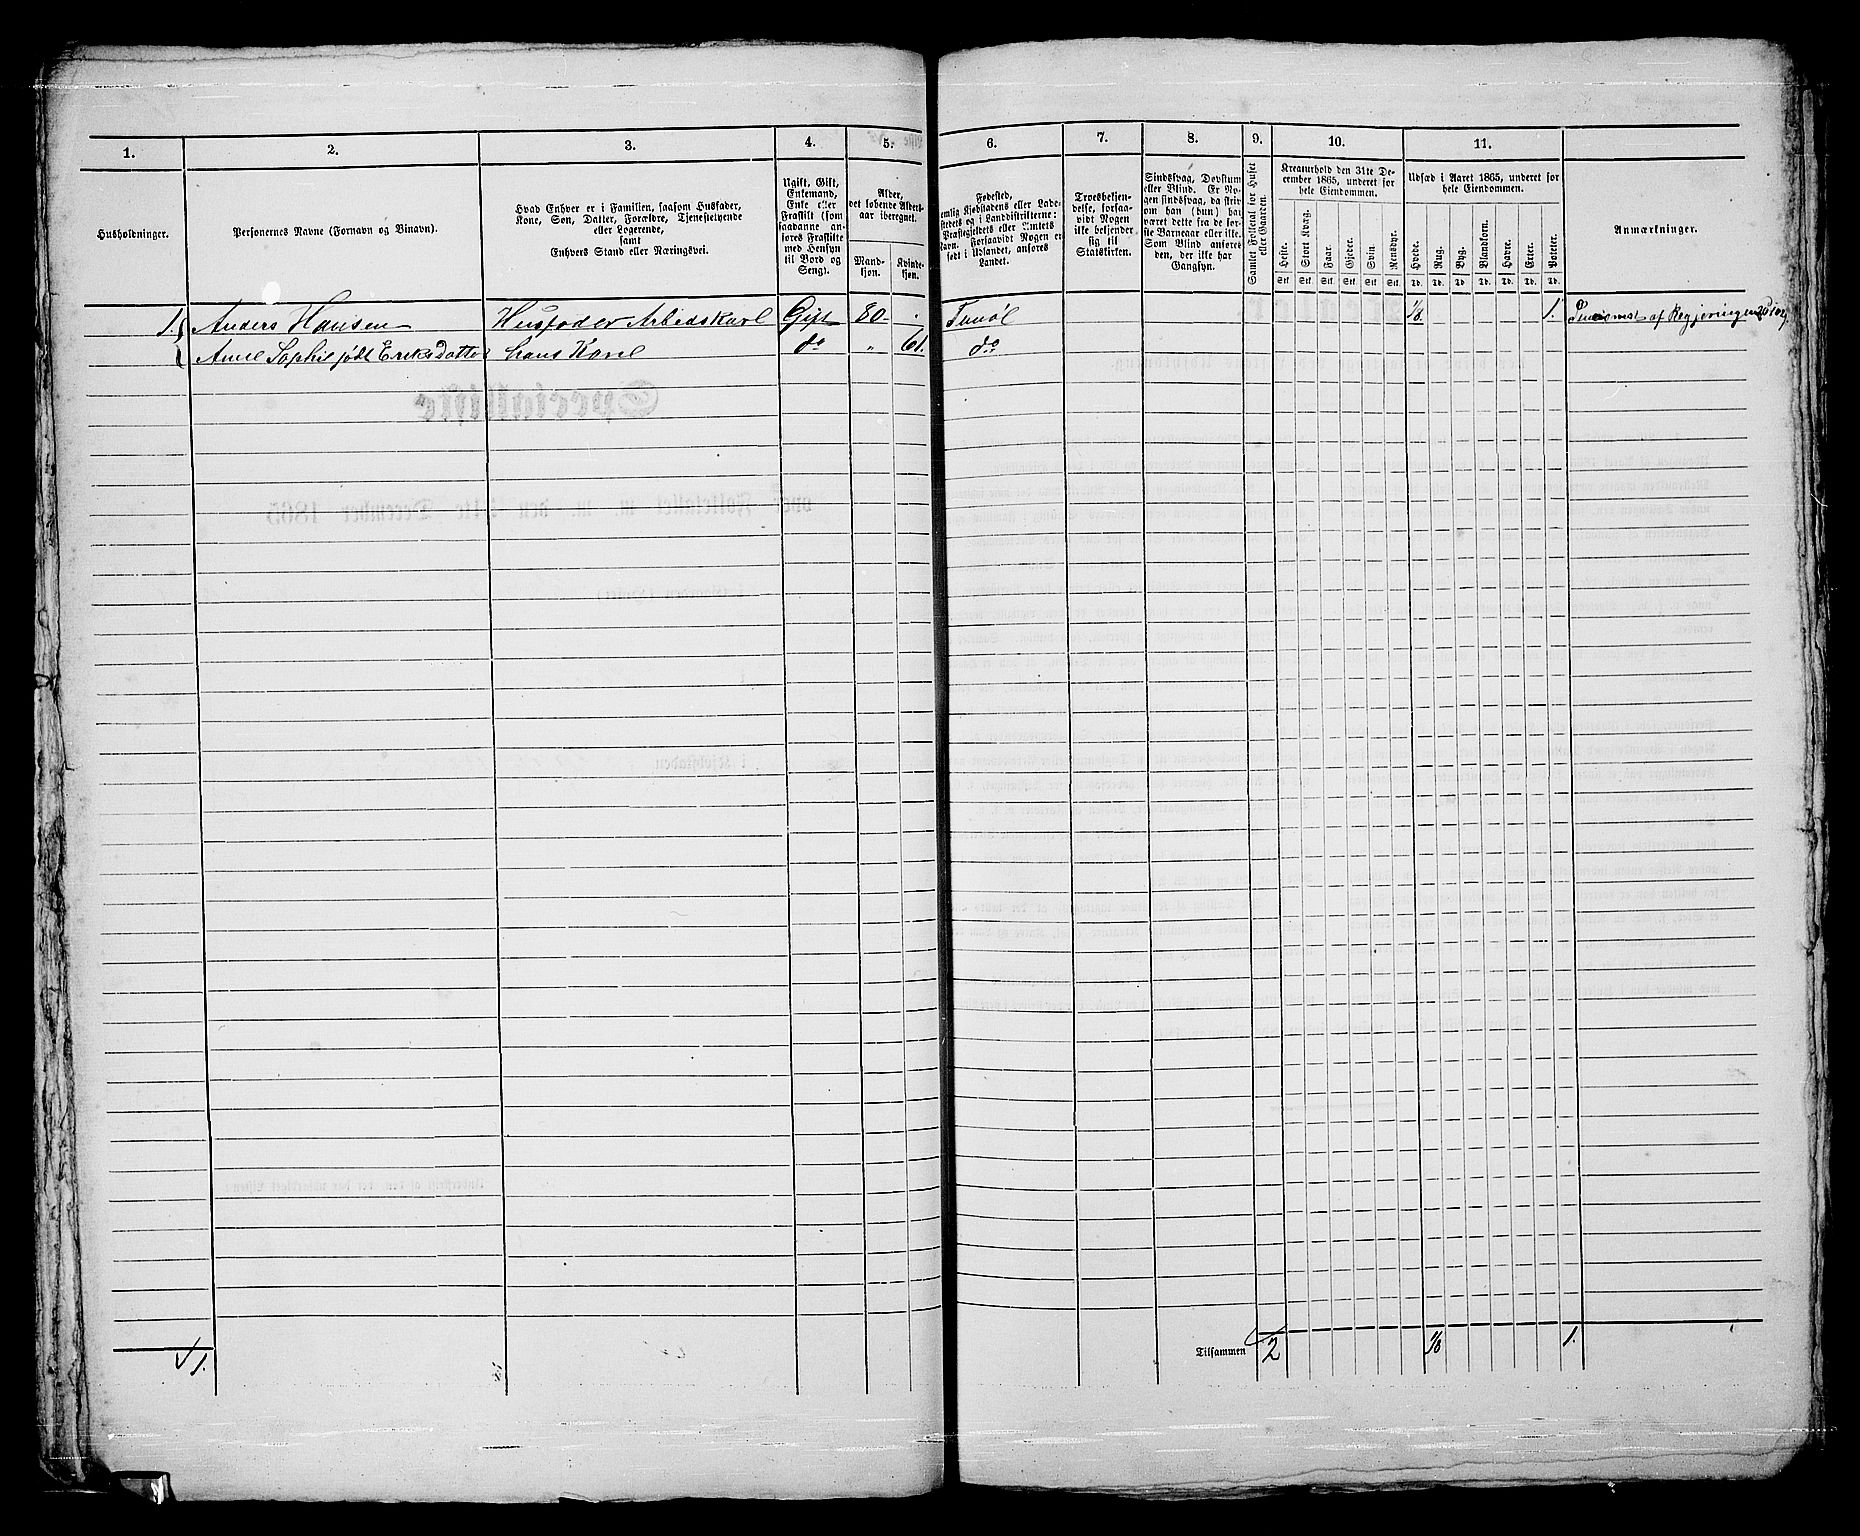 1. 2. 3. 4. 5. 6. 7. 8. 9. 10. 11.
Husholdninger.
Personernes Navne (Fornavn og Binavn).
Hvad Enhver er i Familien, saasom Husfader,
Kone, Søn, Datter, Forældre, Tjenestetyende
eller Logerende,
samt
Enhvers Stand eller Næringsvei.
Ugift, Gift,
Enkemand,
Enke eller
Fraskilt (som
saadanne an-
føres Fraskilte
med Hensyn
til Bord og
Seng).
Alder,
det løbende Alders-
aar iberegnet.
Mand-
kjøn.
Kvinde-
kjøn.
Fødested,
nemlig Kjøbstadens eller Lade-
stedets og i Landdistrikterne:
Præstegjeldets eller Amtets
Navn. Forsaavidt Nogen er
født i Udlandet, anføres
Landet.
Troesbekjen-
delse, forsaa-
vidt Nogen
ikke bekjender
sig til
Statskirken.
Sindssvag, Døvstum
eller Blind. Er No-
gen sindssvag, da skriv
om han (hun) har
været dette fra de før-
ste Barneaar eller ikke.
Som Blind anføres
den, der ikke har
Gangsyn.
Samlet Folketal for Huset
eller Gaarden.
Kreaturhold den 31te De-
cember 1865, underet for
hele Eiendommen.
Heste. Stort Kvæg. Faar. Gjeter. Svin. Rensdyr.
Stk. Stk. Stk. Stk. Stk. Stk.
Udsæd i Aaret 1865, underet for
hele Eiendommen.
Hvede. Rug. Byg. Blandkorn. Havre. Erter. Poteter.
Td. Td. Td. Td. Td. Td. Td.
Anmærkninger.
1. Anders Hansen Husfader Arbedskarl Gift 80 . 1/8 1. af Regjeringen
Anne Sophie født Eriksdatter hans Kone do „ 61. do
1.
Tilsammen 2 1/8 1.